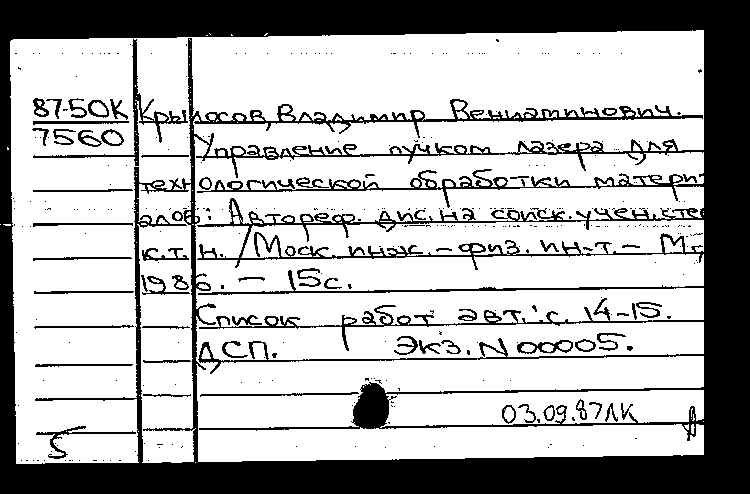 87-50К Крылосов, Владимир Вениаминович.
7560 Управление пучком лазера для
технологической обработки матери-
алов: Автореф. дис. на соиск. учен. степ
к.т.н. / Моск. инж.-физ. ин-т. - М.,
1986. - 15с.
Список работ авт.: с. 14-15.
ДСП. Экз. N 00005.
03.09.87ЛК
5